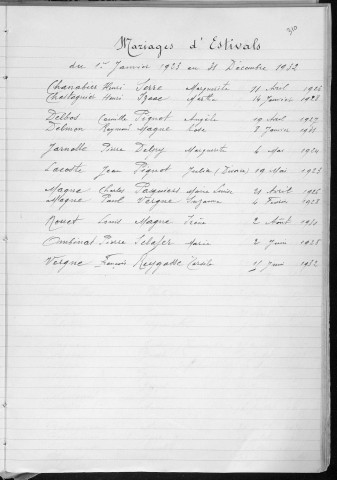 310
Mariages d'Estivals
du 1er Janvier 1923 au 31 Décembre 1932
Henri Serre Marguerite 11 Avril 1926
Henri Marthe 14 Janvier 1928
Delbos Camille Pignot Angèle 19 Avril 1927
Delmon Raymond Magne 3 Janvier 1931
Jarnolle Pierre Delpy Marguerite 6 Mai 1924
Lacoste Jean Pignot Julia 19 Mai 1923
Magne Charles Marie Louise 21 Avril 1926
Magne Paul Vergne Suzanne 4 Février 1928
Rouet Louis Magne Irène 2 Août
Pierre Marie 2 Juin 1928
Vergne François Reygasse Juin 1932